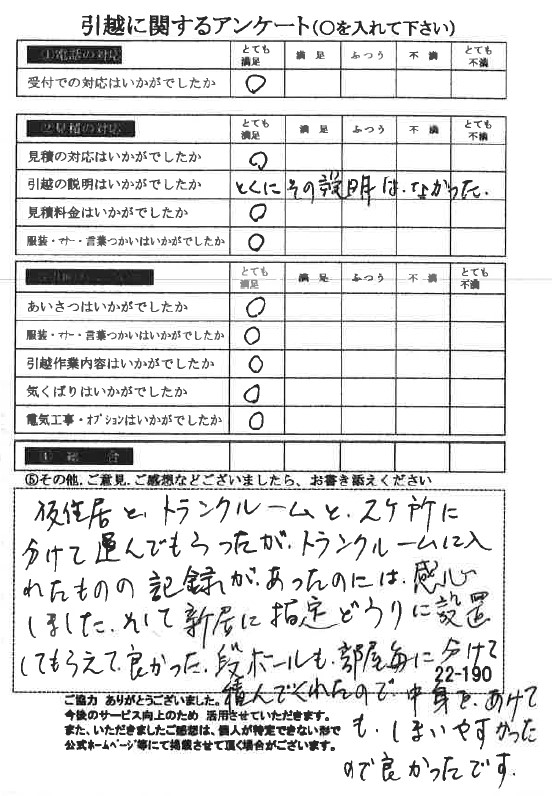 引越に関するアンケート(○を入れて下さい)
①電話の対応 とても満足 満足 ふつう 不満 とても不満
受付での対応はいかがでしたか ○
②見積の対応 とても満足 満足 ふつう 不満 とても不満
見積の対応はいかがでしたか ○
引越の説明はいかがでしたか とくにその説明は、なかった。
見積料金はいかがでしたか ○
服装・マナー・言葉つかいはいかがでしたか ○
とても満足 満足 ふつう 不満 とても不満
あいさつはいかがでしたか ○
服装・マナー・言葉つかいはいかがでしたか ○
引越作業内容はいかがでしたか ○
気くばりはいかがでしたか ○
電気工事・オプションはいかがでしたか ○
④総合
⑤その他、ご意見、ご感想などございましたら、お書き添えください
仮住居と、トランクルームと、2ヶ所に
分けて運んでもらったが、トランクルームに入
れたものの記録が、あったのには、感心
しました。そして新居に指定どうりに設置
してもらえて、良かった。段ボールも、部屋毎に分けて
22-190
積んでくれたので、中身を、あけて
も、しまいやすかった
ので良かったです。
ご協力 ありがとうございました。
今後のサービス向上のため 活用させていただきます。
また、いただきましたご感想は、個人が特定できない形で
公式ホームページ等にて掲載させて頂く場合がございます。